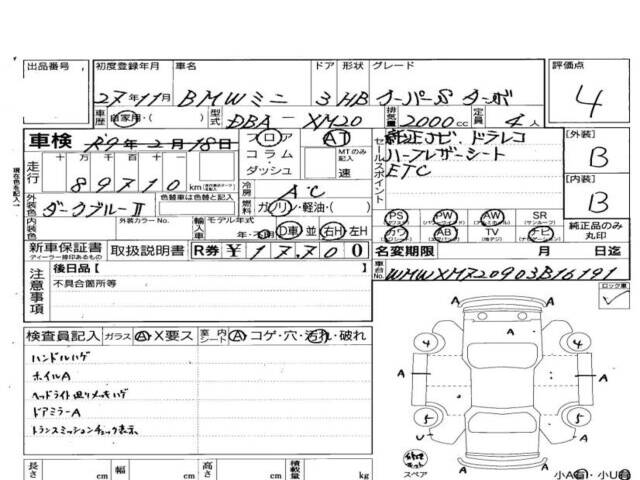 出品番号 初度登録年月 車名 ドア 形状 グレード 評価点
27年11月 BMWミニ 3 HB クーパーS ターボ 4
車歴 自家用・( ) 型式 DBA-XM20 排気量 2000cc 定員 4人
車検 R9年2月18日 フロア AT
コラム MTのみ記入
ダッシュ 速
セールスポイント
純正ナビ・ドラレコ
ハーフレザーシート
ETC
【外装】
B
【内装】
B
現在色を記入
走行 十 万 千 百 十
89710 km
冷房 AC
外装色 ダークブルーII 色替車は色替と記入
燃料 ガソリン・軽油・( )
内装色 外装カラーNo. 輸入車 モデル年式 年・不明 D車 並 右H 左H
PS PW AW SR
(パワーウインド) (サンルーフ)
カワ AB TV ナビ
(エアバッグ) (地デジ) (ナビゲーション)
純正品のみ丸印
新車保証書 取扱説明書 R券 ¥17,700
ディーラー捺印あるもの
名変期限 月 日迄
車台No. WMWXM720903B16191
注意事項
後日品【 】
不具合箇所等
ロック車
検査員記入 ガラス A・X要ス 室内シート A・コゲ・穴・汚れ・破れ
ハンドルハゲ
ホイルA
ヘッドライト回りメッキハゲ
ドアミラーA
トランスミッションチェック表示
A
4 4
A A A A
5 5
U A A
スペア
小A有・小U有
長さ cm 幅 cm 高さ cm 積載量 kg